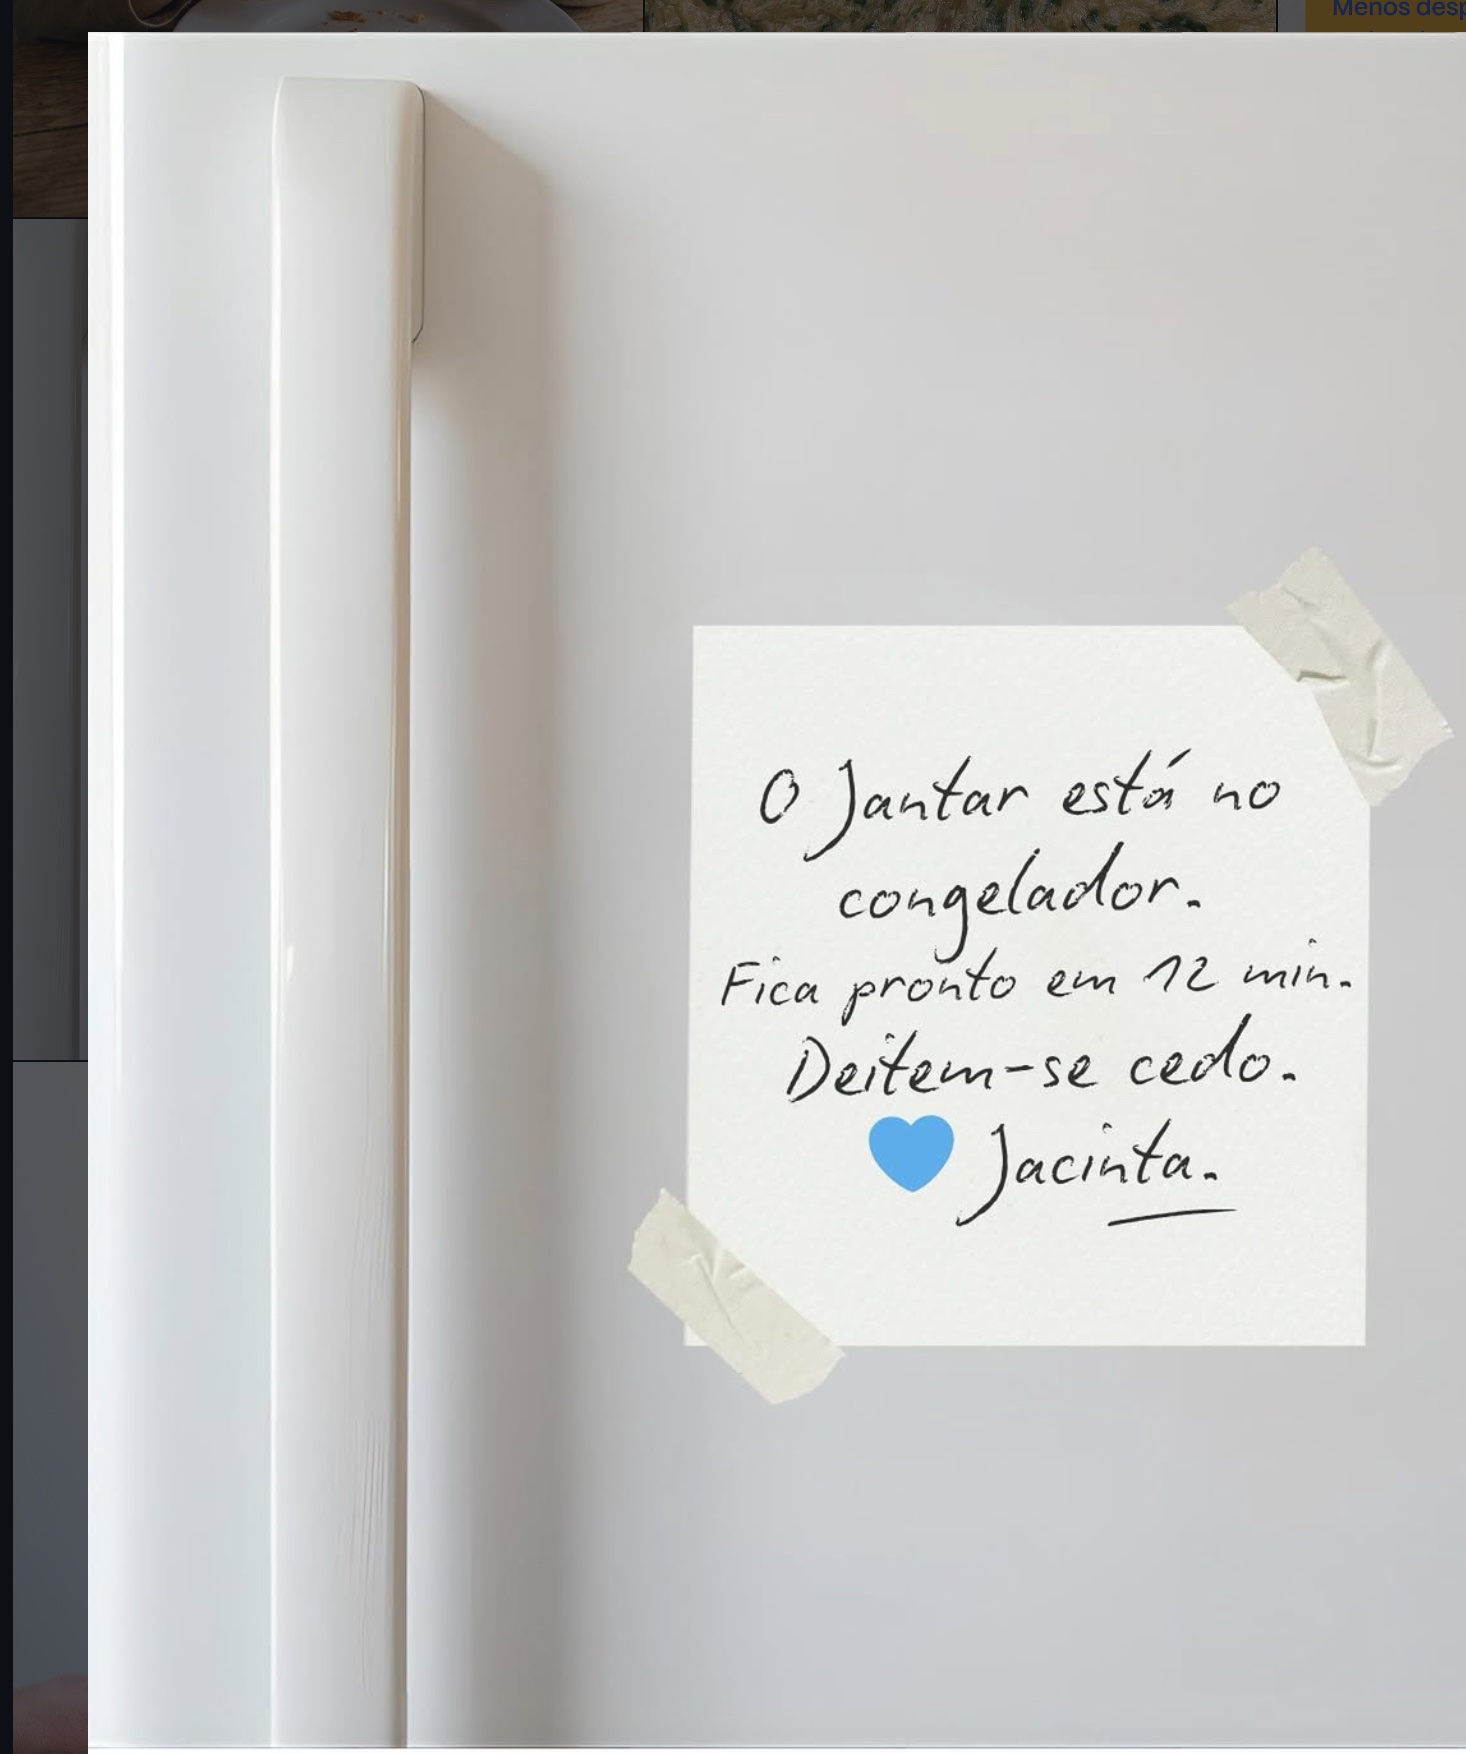 Menos desp
O Jantar está no
congelador.
Fica pronto em 12 min.
Deitem-se cedo.
Jacinta.